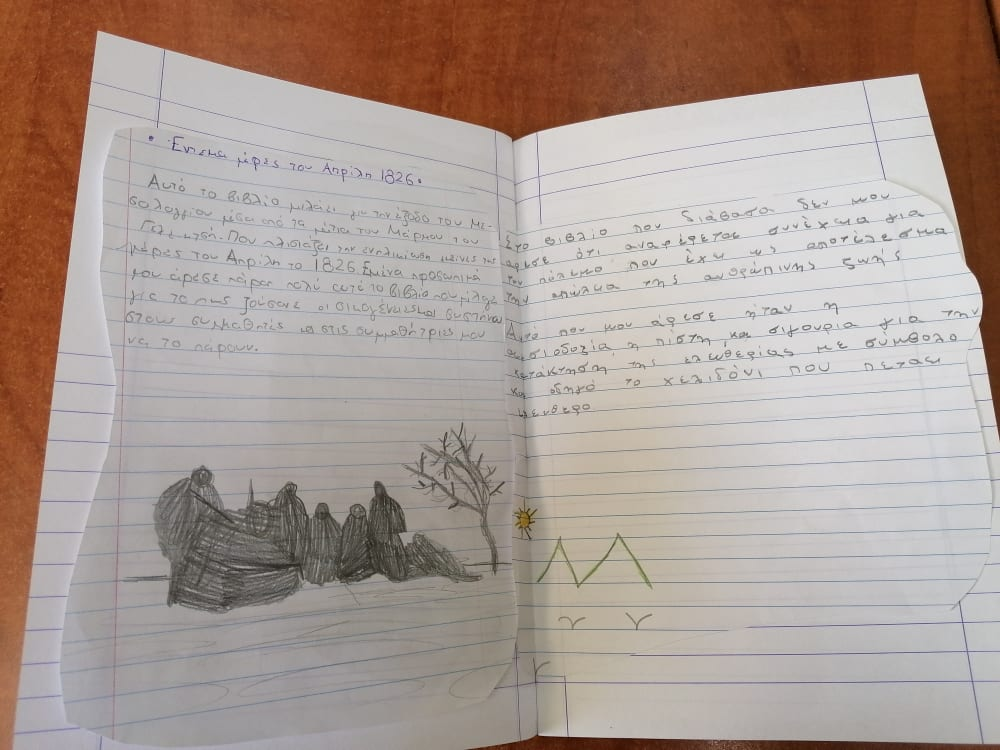 • Έντεκα μέρες του Απρίλη 1826.
Αυτό το βιβλίο μιλάει για την έξοδο του Με-
σολογγίου μέσα από τα μάτια του Μάρμου του
Που πλισιάζει την ενηλικίωση τις
μέρες του Απρίλη το 1826. Εμένα προσωπικά
μου άρεσε πάρα πολύ αυτό το βιβλίο που μίλαγε
για το πως ζούσανε οι οικογένειες και συστήνω
στους συμμαθητές και στις συμμαθήτριες μου
να το πάρουν.
Στο βιβλίο που διάβασα δεν μου
άρεσε ότι αναφέρεται συνέχεια για
τον πόλεμο που έχει ως αποτέλεσμα
την απώλεια της ανθρώπινης ζωής
Αυτό που μου άρεσε ήταν η
αισιοδοξία, η πίστη και σιγουρια για την
κατάκτηση της ελευθερίας με συμβολο
και οδηγό το χελιδόνι που πεταει
ελευθερο